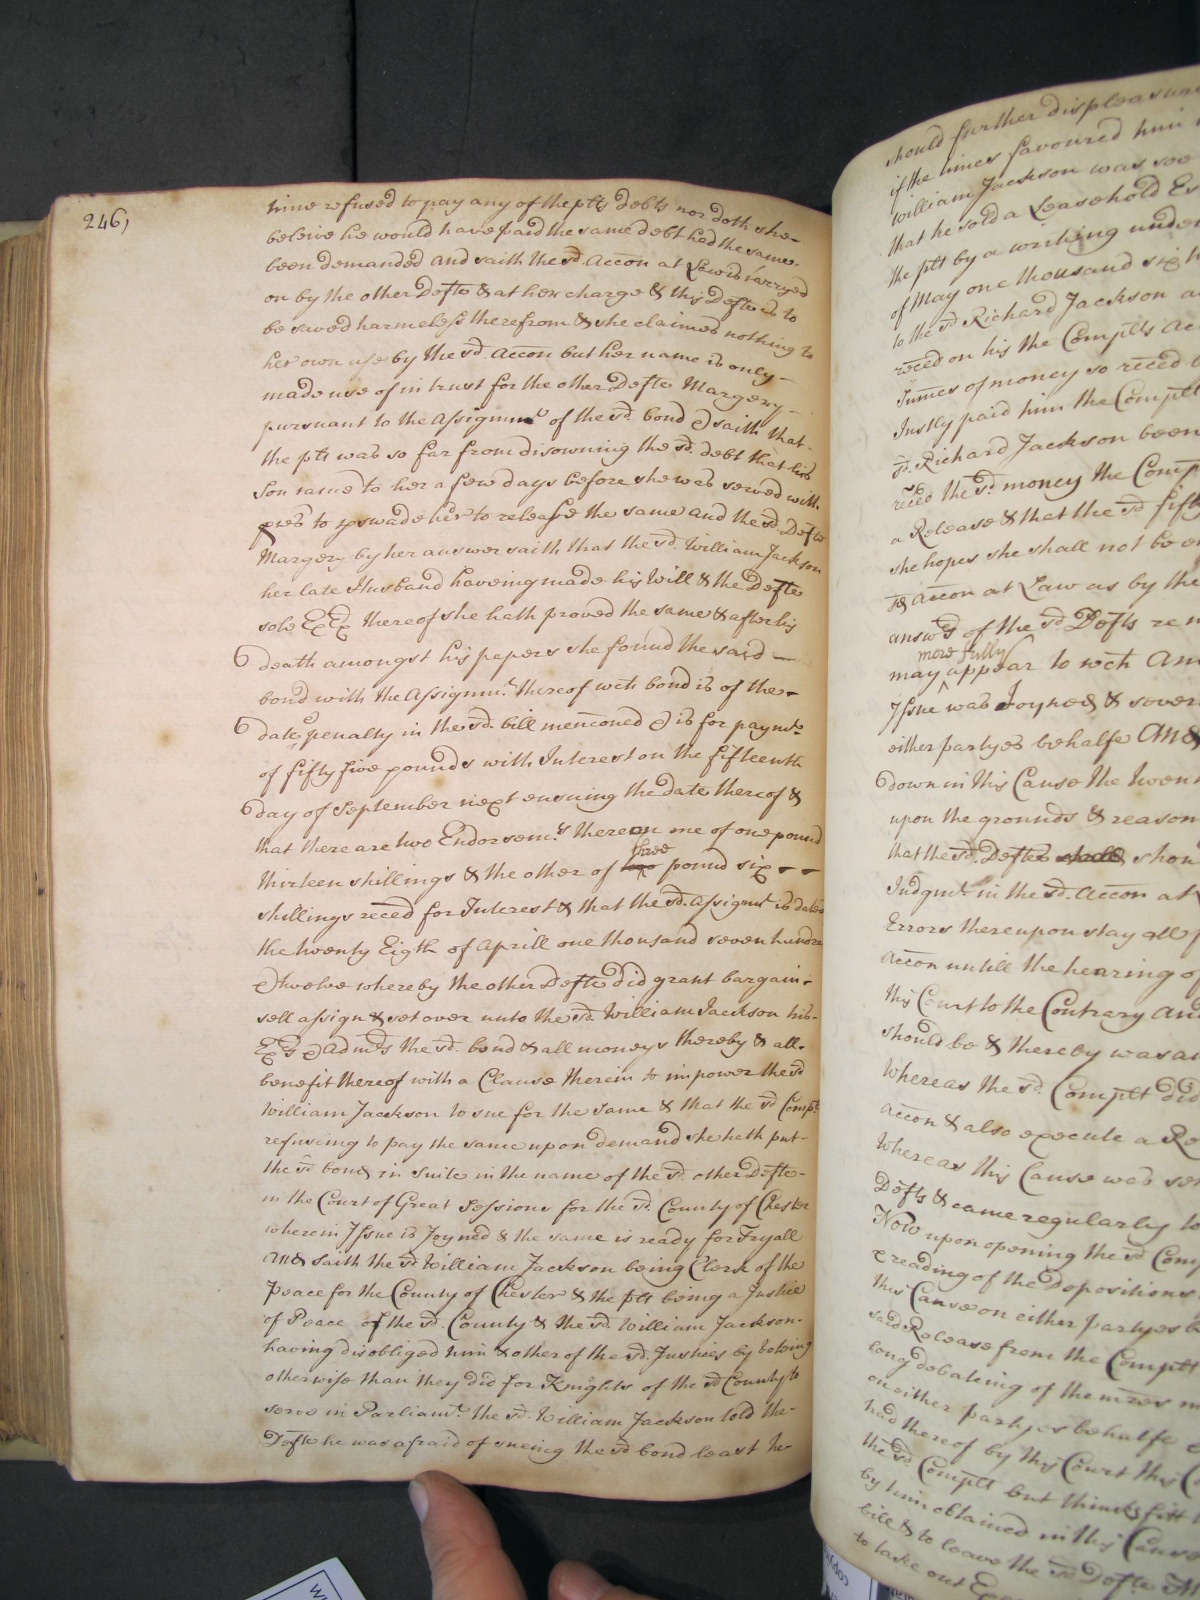 246)
time refused to pay any of the plts Debts nor doth she
beleive he would have paid the same debt had the same
been demanded and saith the sd. Accon at Law is carryed
on by the other Defte & at her charge & this Defte is to
be saved harmeless therefrom & she claimes nothing to
her own use by the sd. Accon but her name is only
made use of in trust for the other Defte Margery
pursuant to the Assignmt of the sd. bond & saith that
the plt was so far from disowning the sd. debt that his
Son came to her a few days before she was served with
pces to pswade her to release the same and the sd. Defte
Margery by her answer saith that the sd. William Jackson
her late Husband haveing made his Will & the Defte
sole ExEx thereof she hath proved the same & after his
death amongst his papers she found the said
bond with the Assignmt. thereof wch bond is of the
date penalty in the sd. bill menconed & is for paymte
of fifty five pounds with Interest on the fifteenth
day of September next ensuing the date thereof &
that there are two Endorsemts. thereon one of one pound
three
thirteen shillings & the other of pound six
shillings reced for Interest & that the sd. Assignmt is dated
the twenty Eigth of Aprill one thousand seven hundred
& twelve whereby the other Defte did grant bargain
sell assign & set over unto the sd. William Jackson his
Exrs & Admrs the sd. bond & all moneys thereby & all
benefit thereof with a Clause therein to impower the sd
William Jackson to sue for the same & that the sd Complt
refuseing to pay the same upon demand she hath put
the sd bond in suite in the name of the sd. other Defte
in the Court of Great Sessions for the sd. County of Chester
wherein Issue is Joyned & the same is ready for Tryall
And saith the sd William Jackson being Clerk of the
Peace for the County of Chester & the plt being a Justice
of Peace of the sd. County & the sd. William Jackson
having disobliged him & other of the sd. Justices by voteing
otherwise than they did for Knights of the sd County to
serve in Parliamt. the sd. William Jackson told the
Defte he was afraid of sueing the sd bond least he
should further displeasure
if the times favoured him
William Jackson was soe
that he sold a Leasehold Es
the plt by a writing under
of May one thousand six h
to the sd. Richard Jackson a
reced on his the Complts Ac
Sumes of money so reced
Justly paid him the Complt
sd. Richard Jackson been
reced the sd money the Comp
a Release & that the sd fifty
she hopes she shall not be
sd Accon at Law as by the
answs of the sd Defts re
more fully
may appear to wch An
Issue was Joyned & sever
either partyes behalfe And
down in this Cause the twen
upon the grounds & reason
that the sd. Defte shou
Judgmt. in the sd. Accon at
Errors thereupon stay all
Accon untill the hearing of
this Court to the Contrary And
should be & thereby was
Whereas the sd. Complt did
Accon & also execute a Re
Whereas this Cause was
Defts & came regularly to
Now upon opening the sd Com
& reading of the Depositions
this Cause on either partyes
said Release from the Complt
long debateing of the mres
on either partyes behalfe
had thereof by this Court this C
the sd Complt but thinks fitt
by him obtained in this Cause
bill & to leave the sd Defte M
to take out